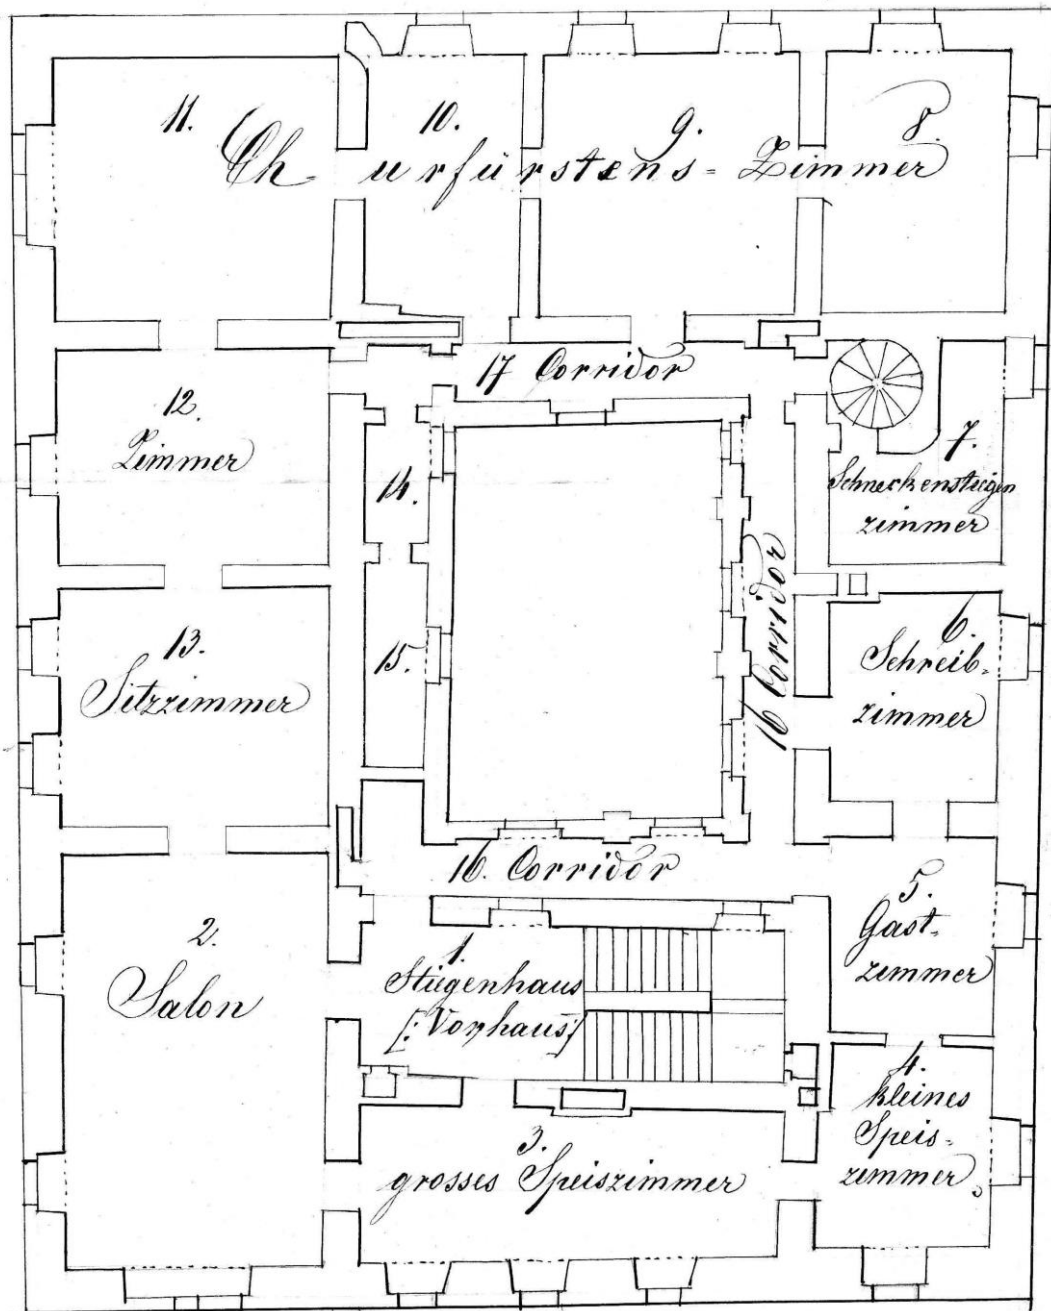 11. 10. 9. 8.
Churfürstens-Zimmer
17 Corridor
12.
Zimmer
14.
7.
Schneckenstiegen
zimmer
16 Corridor
13.
Sitzzimmer
15.
6.
Schreib-
zimmer
16. Corridor
5.
Gast-
zimmer
2.
Salon
1.
Stiegenhaus
[: Vorhaus :]
4.
kleines
Speis-
zimmer
3.
grosses Speiszimmer